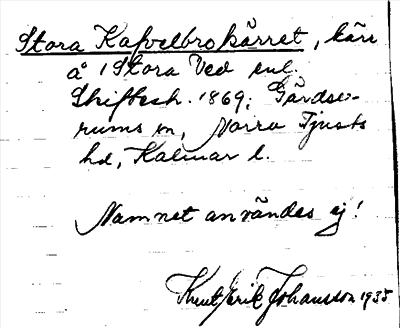 Stora Kafvelbrokärret, kärr
å 1 Stora Ved enl.
Skiftesh. 1869; Gärdse-
rums sn, Norra Tjusts
hd, Kalmar l.
Namnet användes ej!
Knut Erik Johansson 1935